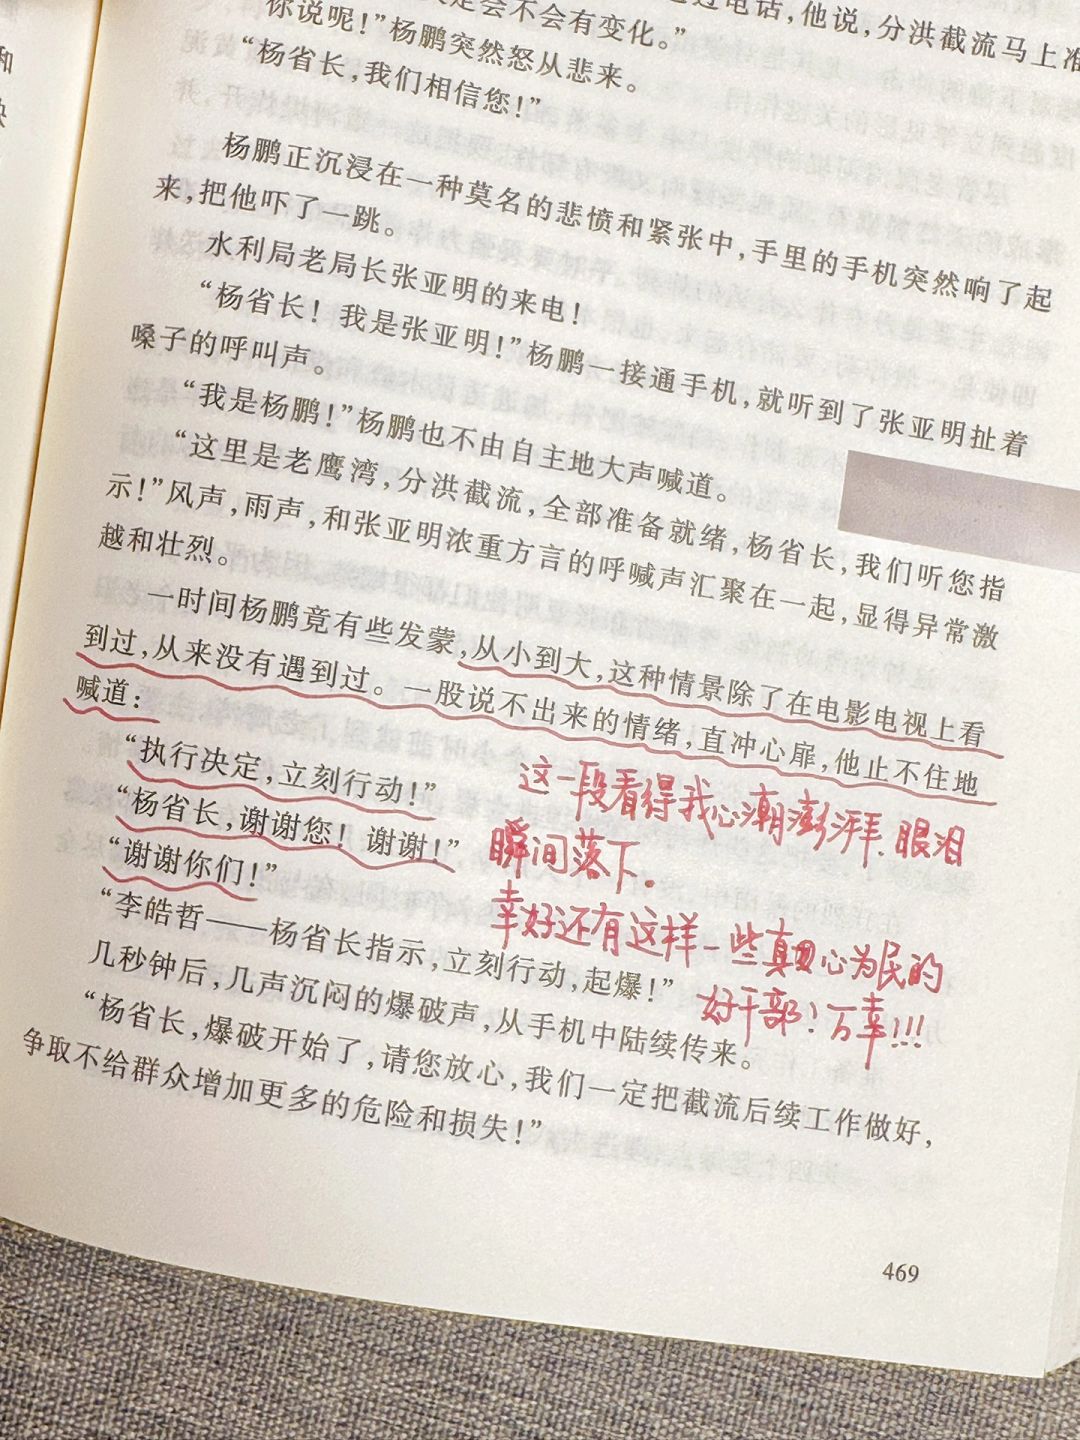 和
过电话，他说，分洪截流马上准
定会不会有变化。”
你说呢！”杨鹏突然怒从悲来。
“杨省长，我们相信您！”
杨鹏正沉浸在一种莫名的悲愤和紧张中，手里的手机突然响了起
来，把他吓了一跳。
水利局老局长张亚明的来电！
“杨省长！我是张亚明！”杨鹏一接通手机，就听到了张亚明扯着
嗓子的呼叫声。
“我是杨鹏！”杨鹏也不由自主地大声喊道。
“这里是老鹰湾，分洪截流，全部准备就绪，杨省长，我们听您指
示！”风声，雨声，和张亚明浓重方言的呼喊声汇聚在一起，显得异常激
越和壮烈。
一时间杨鹏竟有些发蒙，从小到大，这种情景除了在电影电视上看
到过，从来没有遇到过。一股说不出来的情绪，直冲心扉，他止不住地
喊道：
“执行决定，立刻行动！”
“杨省长，谢谢您！谢谢！”
“谢谢你们！”
这一段看得我心潮澎湃，眼泪
瞬间落下。
幸好还有这样一些真心为民的
好干部！万幸!!!
“李皓哲——杨省长指示，立刻行动，起爆！”
几秒钟后，几声沉闷的爆破声，从手机中陆续传来。
“杨省长，爆破开始了，请您放心，我们一定把截流后续工作做好，
争取不给群众增加更多的危险和损失！”
469